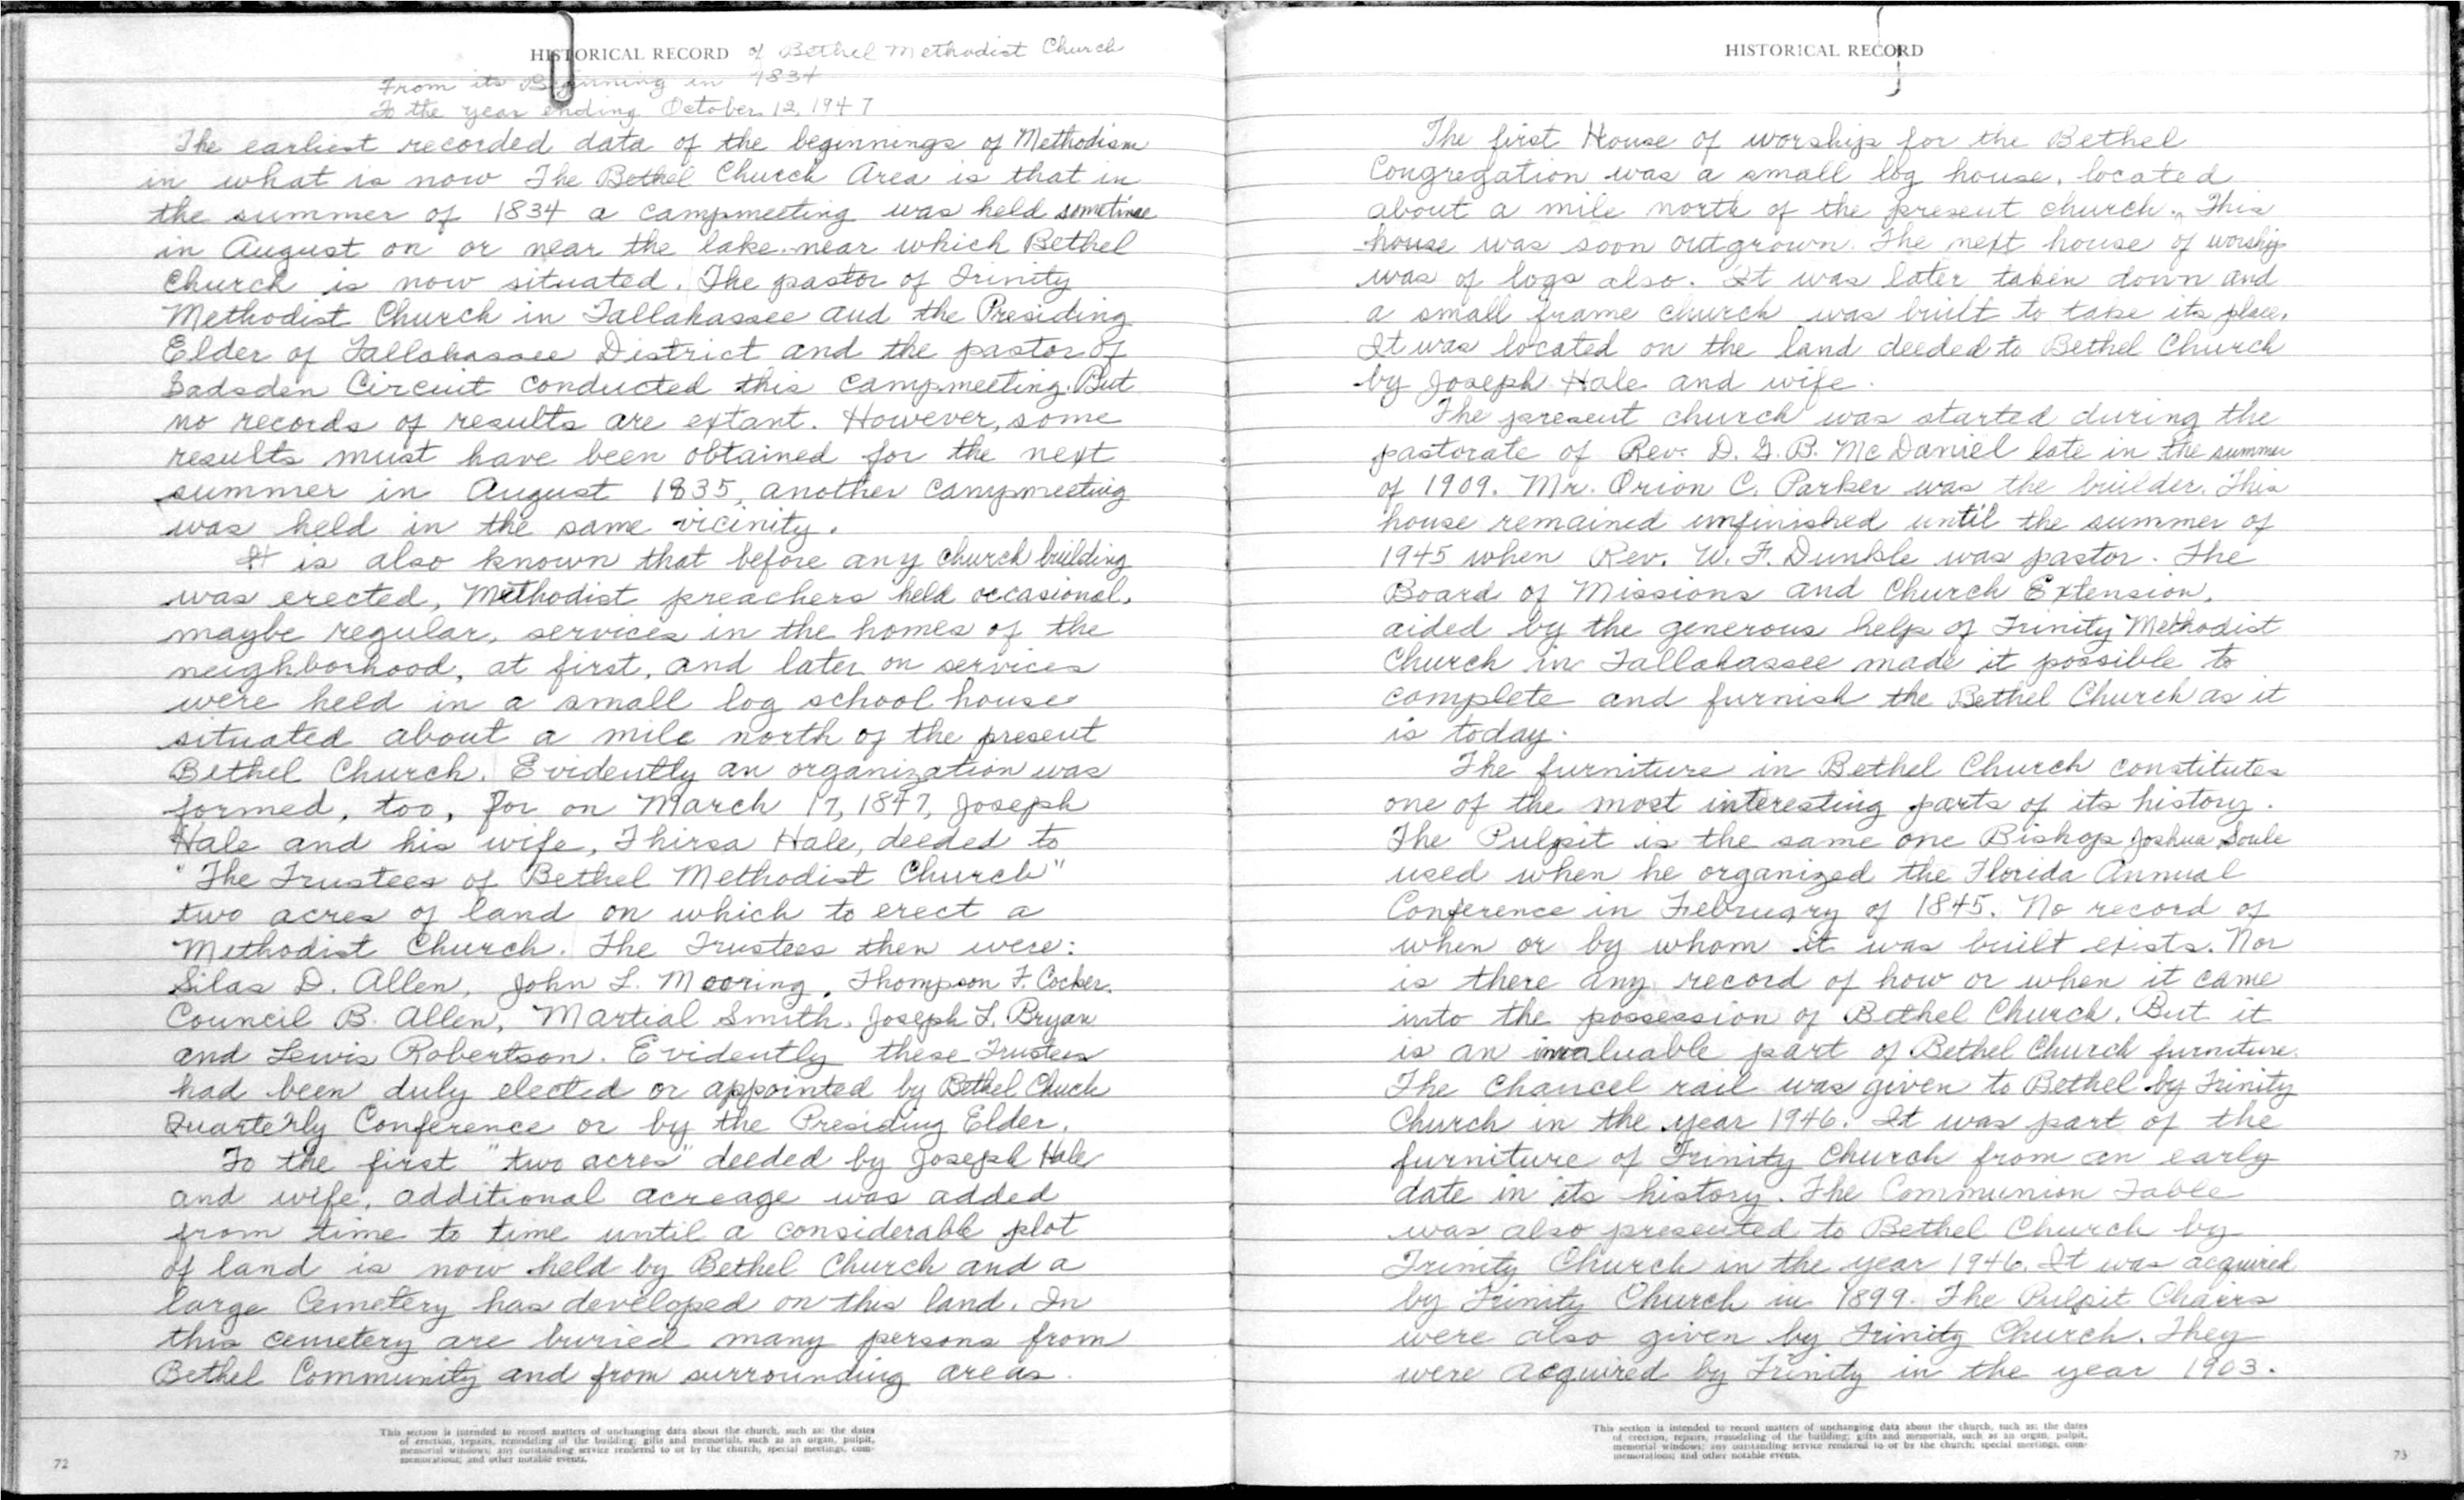 HISTORICAL RECORD of Bethel Methodist Church
From its Beginning in 1834
To the year ending October 12, 1947
The earliest recorded data of the beginnings of Methodism
in what is now The Bethel Church Area is that in
the summer of 1834 a campmeeting was held sometime
in August on or near the lake near which Bethel
Church is now situated. The pastor of Trinity
Methodist Church in Tallahassee and the Presiding
Elder of Tallahassee District and the pastor of
Gadsden Circuit conducted this campmeeting. But
no records of results are extant. However, some
results must have been obtained for the next
summer in August 1835, another campmeeting
was held in the same vicinity.
It is also known that before any church building
was erected, Methodist preachers held occasional,
maybe regular, services in the homes of the
neighborhood, at first, and later on services
were held in a small log school house
situated about a mile north of the present
Bethel Church. Evidently an organization was
formed, too, for on March 17, 1847, Joseph
Hale and his wife, Thirsa Hale, deeded to
"The Trustees of Bethel Methodist Church"
two acres of land on which to erect a
Methodist Church. The Trustees then were:
Silas D. Allen, John L. Mooring, Thompson F. Cocker,
Council B. Allen, Martial Smith, Joseph L. Bryan
and Lewis Robertson. Evidently these Trustees
had been duly elected or appointed by Bethel Chuch
Quarterly Conference or by the Presiding Elder.
To the first "two acres" deeded by Joseph Hale
and wife, additional acreage was added
from time to time until a considerable plot
of land is now held by Bethel Church and a
large Cemetery has developed on this land. In
this cemetery are buried many persons from
Bethel Community and from surrounding areas.
This section is intended to record matters of unchanging data about the church, such as: the dates
of erection, repairs, remodeling of the building; gifts and memorials, such as an organ, pulpit,
memorial windows; any outstanding service rendered to or by the church, special meetings, com-
memorations; and other notable events.
72
HISTORICAL RECORD
The first House of worship for the Bethel
Congregation was a small log house, located
about a mile north of the present church. This
house was soon outgrown. The next house of worship
was of logs also. It was later taken down and
a small frame church was built to take its place.
It was located on the land deeded to Bethel Church
by Joseph Hale and wife.
The present church was started during the
pastorate of Rev. D. G. B. McDaniel late in the summer
of 1909. Mr. Orion C. Parker was the builder. This
house remained unfinished until the summer of
1945 when Rev. W. F. Dunkle was pastor. The
Board of Missions and Church Extension,
aided by the generous help of Trinity Methodist
Church in Tallahassee made it possible to
complete and furnish the Bethel Church as it
is today.
The furniture in Bethel Church constitutes
one of the most interesting parts of its history.
The Pulpit is the same one Bishop Joshua Soule
used when he organized the Florida Annual
Conference in February of 1845. No record of
when or by whom it was built exists. Nor
is there any record of how or when it came
into the possession of Bethel Church. But it
is an invaluable part of Bethel Church furniture.
The Chancel rail was given to Bethel by Trinity
Church in the year 1946. It was part of the
furniture of Trinity Church from an early
date in its history. The Communion Table
was also presented to Bethel Church by
Trinity Church in the year 1946. It was acquired
by Trinity Church in 1899. The Pulpit Chairs
were also given by Trinity Church. They
were acquired by Trinity in the year 1903.
This section is intended to record matters of unchanging data about the church, such as: the dates
of erection, repairs, remodeling of the building; gifts and memorials, such as an organ, pulpit,
memorial windows; any outstanding service rendered to or by the church; special meetings, com-
memorations; and other notable events.
73